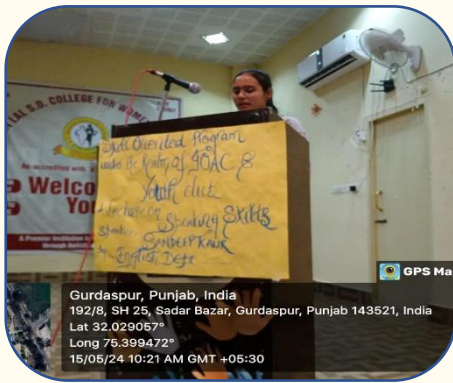 LAL S.D. COLLEGE FOR WOME
Re-accredited with
Welco
Yo
A Premier Institution
through
Oriented Program
under the of IQAC &
Youth club
Lecture on Speaking Skills
Speaker SANDEEP KAUR
English Dept
GPS Ma
Gurdaspur, Punjab, India
192/8, SH 25, Sadar Bazar, Gurdaspur, Punjab 143521, India
Lat 32.029057°
Long 75.399472°
15/05/24 10:21 AM GMT +05:30